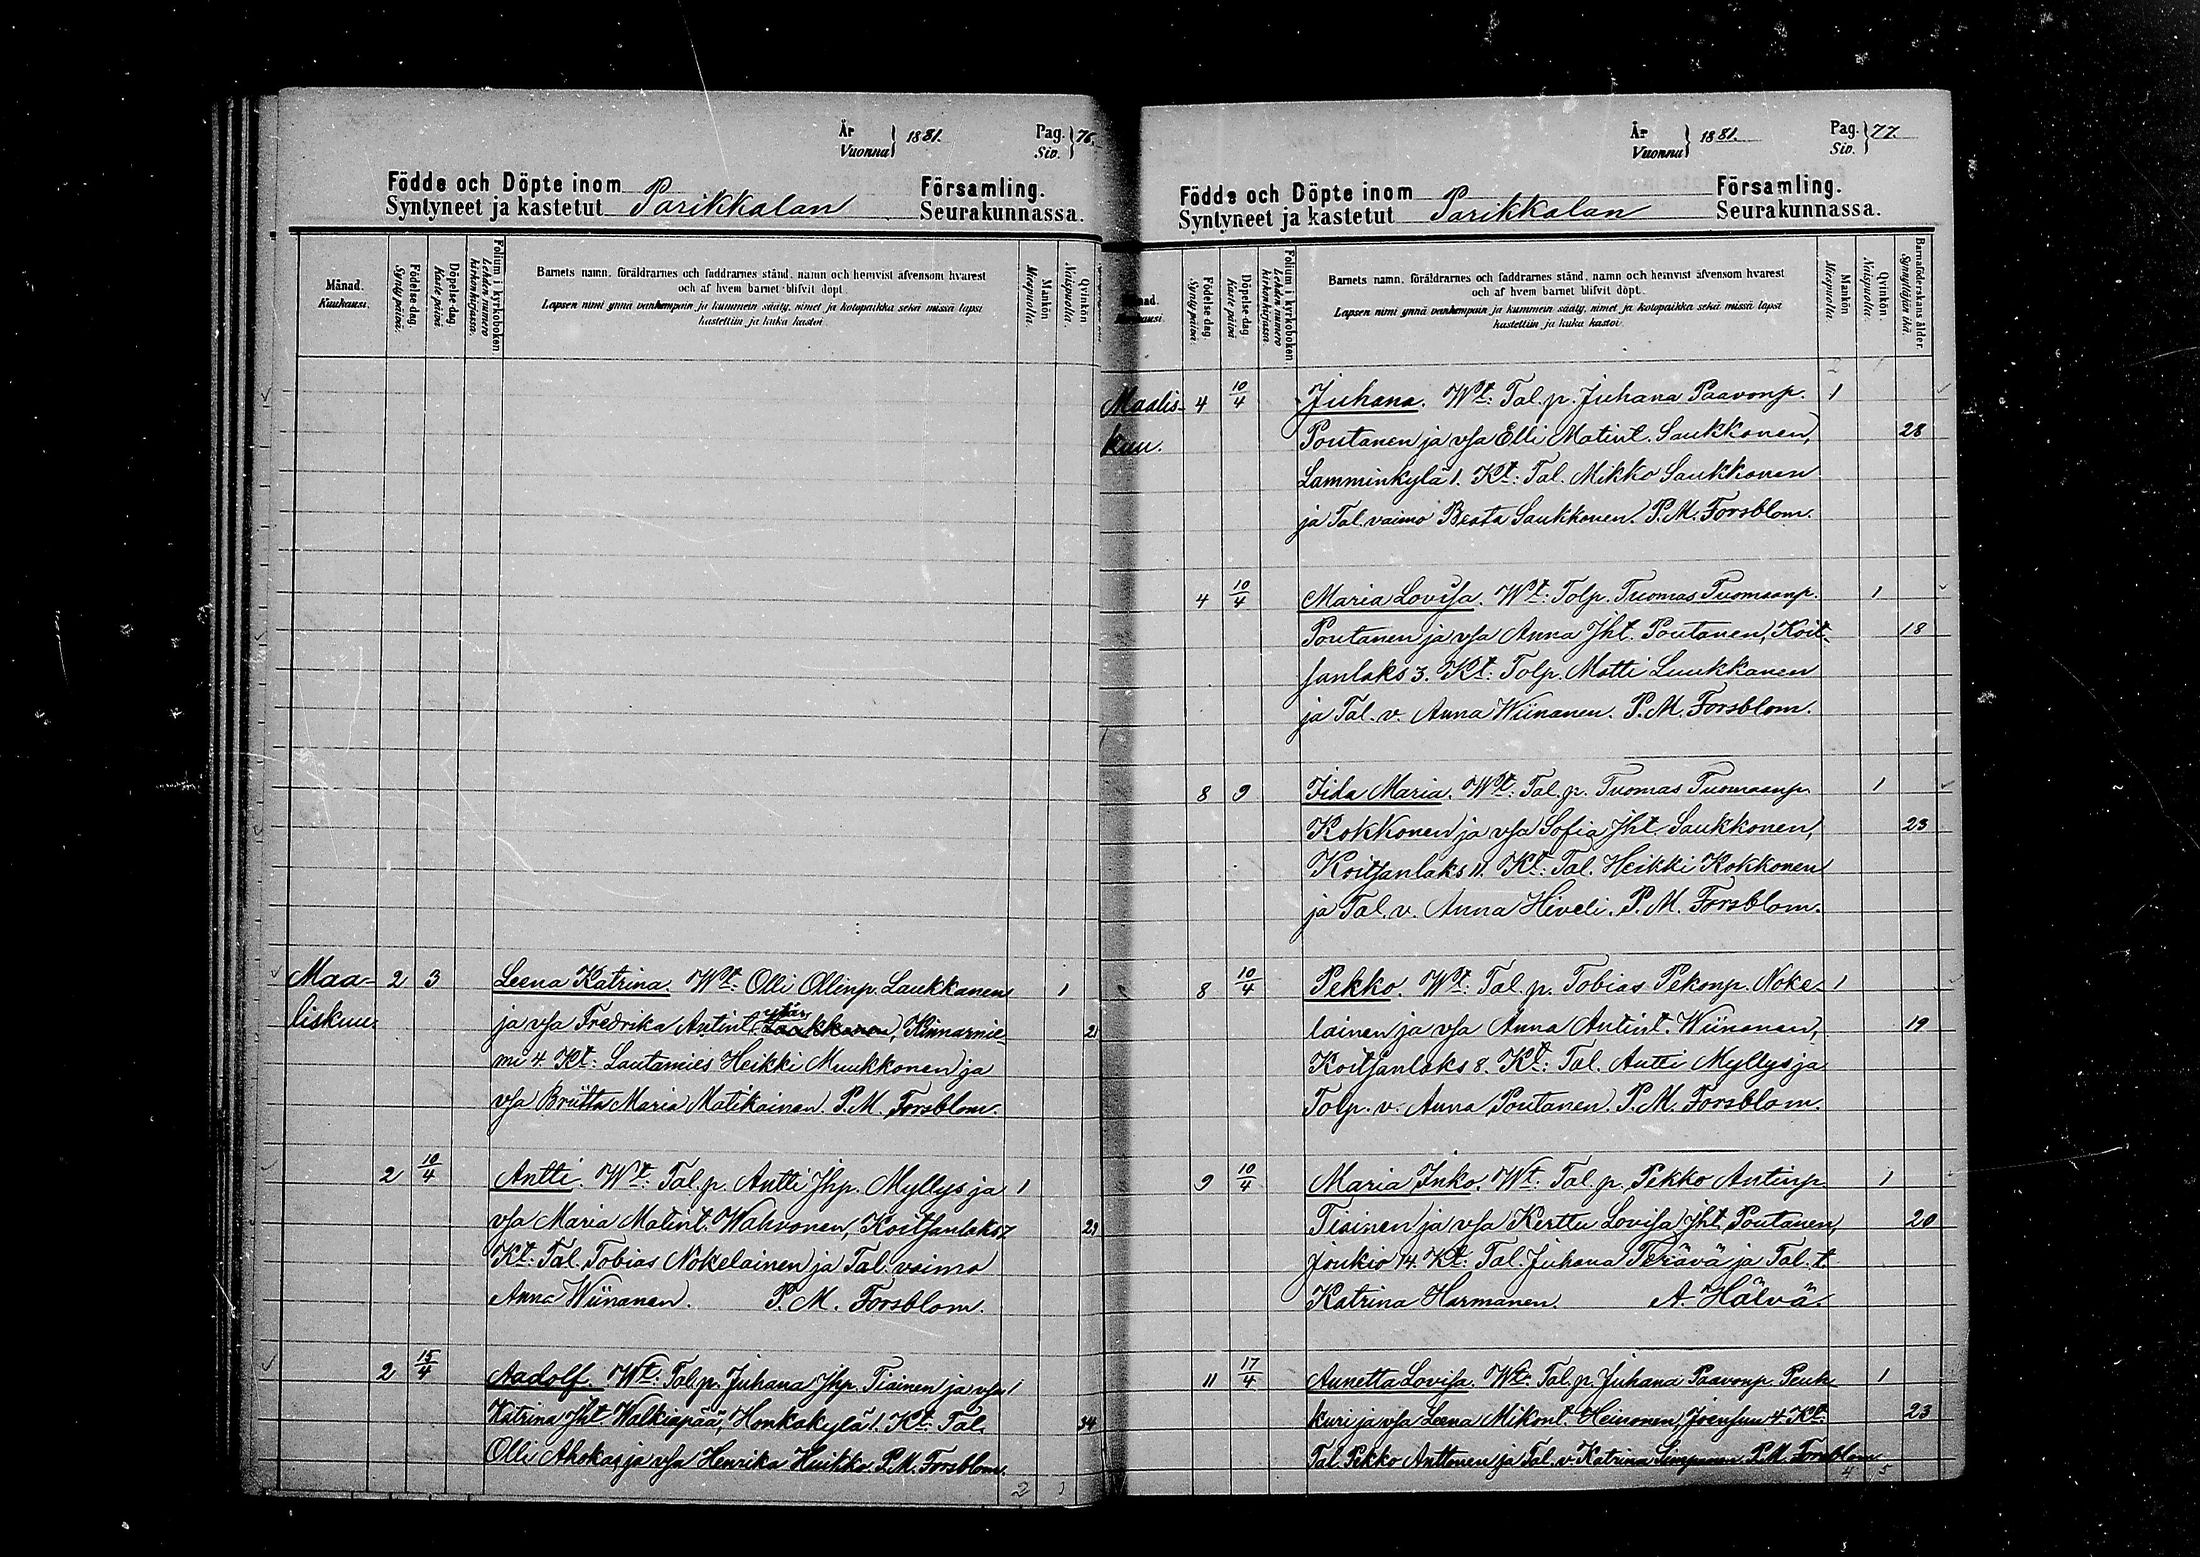 År
Vuonna } 1881.
Pag.
Siv. } 76.
Födde och Döpte inom Församling.
Syntyneet ja kastetut Parikkalan Seurakunnassa.
Månad.
Kuukausi.
Födelse-dag.
Syntymäpäivä.
Döpelse-dag.
Kaste päivä.
Folium i kyrkoboken
Lehden numero kirkonkirjassa.
Barnets namn, föräldrarnes och faddrarnes stånd, namn och hemvist äfvensom hvarest
och af hvem barnet blifvit döpt.
Lapsen nimi ynnä vanhempain ja kummein sääty, nimet ja kotopaikka sekä missä lapsi
kastettiin ja kuka kastoi.
Mankön
Miespuolia.
Qvinkön
Naispuolia.
Maa- 2 3 Leena Katrina. Wt: Olli Ollinp. Laukkanen 1
liskuu. ja vsa Fredrika Antint. Laukkanen, Kinnarnie- 21
mi 4 Kt: Lautamies Heikki Muukkonen ja
vsa Briitta Maria Matikainen. P. M. Forsblom.
2 10/4 Antti. Wt: Tal. p. Antti Jhp. Myllys ja 1
vsa Maria Matint. Wahvonen, Koitsanlaks 7
Kt: Tal. Tobias Nokelainen ja Tal. vaimo
Anna Wiinanen. P. M. Forsblom.
2 15/4 Aadolf. Wt: Tal. p. Juhana Jhp. Tiainen ja vsa 1
Katrina Jht. Walkiapää, Honkakylä 1. Kt: Tal. 34
Olli Ahokas ja vsa Henrika Huikko. P. M. Forsblom.
2 1
År
Vuonna } 1881.
Pag.
Siv. } 77.
Födde och Döpte inom Församling.
Syntyneet ja kastetut Parikkalan Seurakunnassa.
Födelse-dag.
Döpelse-dag.
Kaste päivä
Folium i kyrkoboken
Lehden numero kirkonkirjassa.
Barnets namn, föräldrarnes och faddrarnes stånd, namn och hemvist äfvensom hvarest
och af hvem barnet blifvit döpt.
Lapsen nimi ynnä vanhempain ja kummein sääty, nimet ja kotopaikka sekä missä lapsi
kastettiin ja kuka kastoi.
Mankön
Miespuolia.
Qvinkön.
Naispuolia.
Barnaföderskans ålder.
Synnyttäjän ikä.
Maalis- 4 10/4 Juhana. Wt: Tal. p. Juhana Paavonp. 1
kuu. Poutanen ja vsa Elli Matint. Saukkonen, 28
Lamminkylä 1. Kt: Tal. Mikko Saukkonen
ja Tal. vaimo Beata Saukkonen. P. M. Forsblom.
4 10/4 Maria Lovisa. Wt: Tolp. Tuomas Tuomaanp. 1
Poutanen ja vsa Anna Jht. Poutanen, Koit- 18
sanlaks 3. Kt: Tolp. Matti Luukkanen
ja Tal. v. Anna Wiinanen. P. M. Forsblom.
8 9 Iida Maria. Wt: Tal. p. Tuomas Tuomaanp. 1
Kokkonen ja vsa Sofia Jht. Saukkonen, 23
Koitsanlaks 11. Kt: Tal. Heikki Kokkonen
ja Tal. v. Anna Hiveli. P. M. Forsblom.
8 10/4 Pekko. Wt: Tal. p. Tobias Pekonp. Noke- 1
lainen ja vsa Anna Antint. Wiinanen, 19
Koitsanlaks 8. Kt: Tal. Antti Myllys ja
Tolp. v. Anna Poutanen. P. M. Forsblom.
9 10/4 Maria Inko. Wt: Tal. p. Pekko Antinp. 1
Tiainen ja vsa Kerttu Lovisa Jht. Poutanen, 20
Joukio 14. Kt: Tal. Juhana Terävä ja Tal. t.
Katrina Harmanen. A. Hälvä.
11 17/4 Annetta Lovisa. Wt: Tal. p. Juhana Paavonp. Peuh- 1
kuri ja vsa Leena Mikont. Heinonen, Joensuu 4. Kt: 23
Tal. Pekko Anttonen ja Tal. v. Katrina Simpanen. P. M. Forsblom
4 5